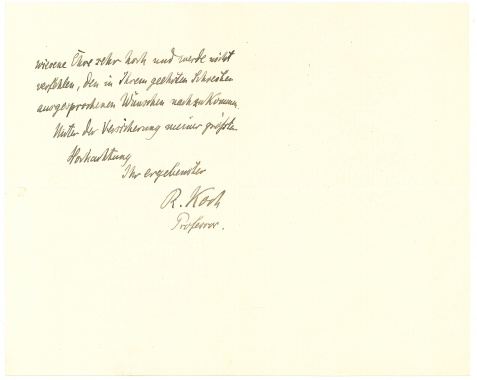 wiesene Ehre sehr hoch und werde nicht
verfehlen, den in Ihrem geehrten Schreiben
ausgesprochenen Wünschen nachzukommen.
Unter der Versicherung meiner größten
Hochachtung
Ihr ergebenster
R. Koch
Professor.